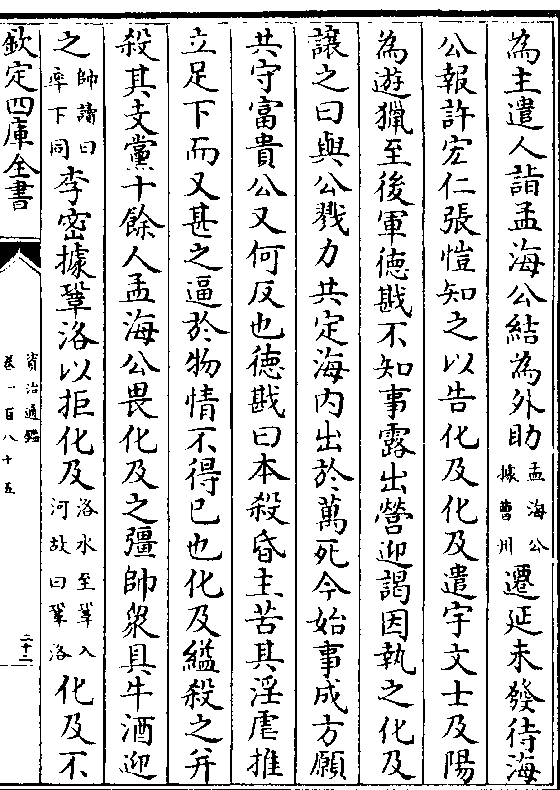 為主遣人詣孟海公結為外助孟海公據曹州遷延未發待海
公報許宏仁張愷知之以告化及化及遣宇文士及陽
為遊獵至後軍德戡不知事露出營迎謁因執之化及
讓之曰與公戮力共定海内出於萬死今始事成方願
共守富貴公又何反也德戡曰本殺昏主苦其淫虐推
立足下而又甚之逼於物情不得已也化及縊殺之并
殺其支黨十餘人孟海公畏化及之彊帥衆具牛酒迎
之帥讀曰率下同李密據鞏洛以拒化及洛水至鞏入河故曰鞏洛化及不
欽定四庫全書
資治通鑑
卷一百八十五
二十二